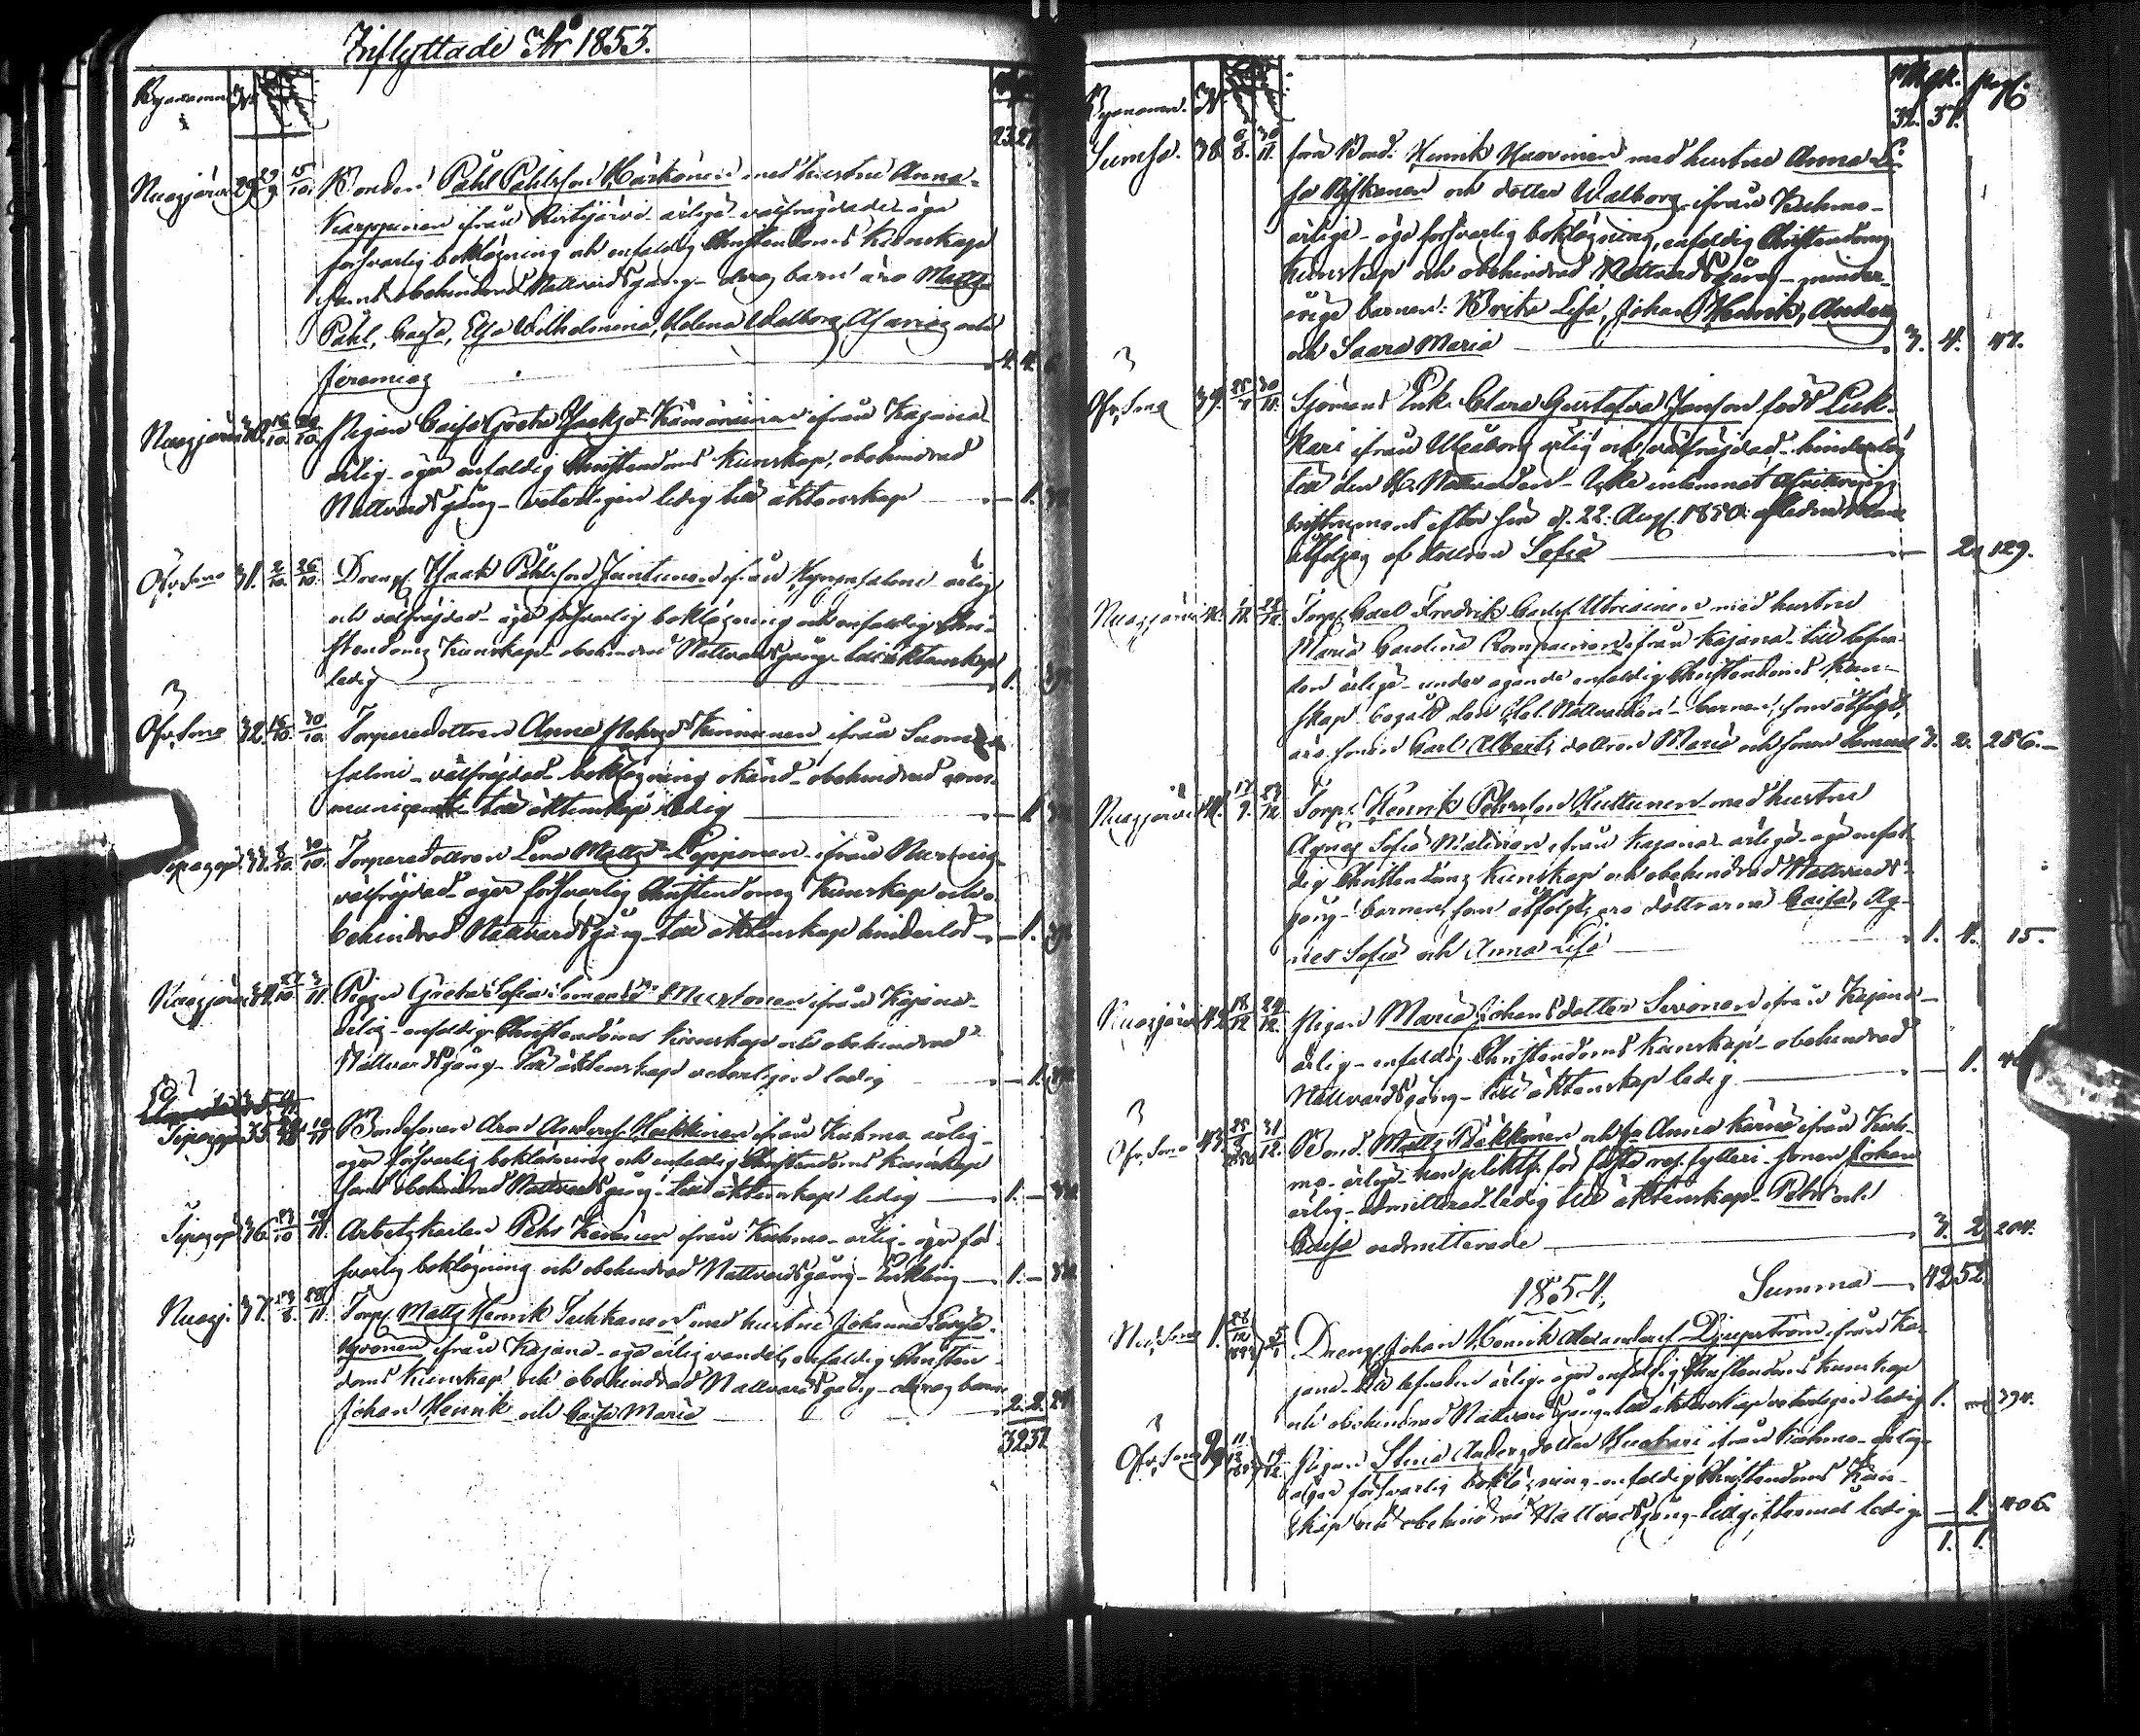 Inflyttade År 1853.
Byanamn No
23. 27
Nuasjärvi 29 29/9 15/10 Bonden Påhl Påhlsson Härkönen med hustru Anna
Karppinen ifrån Ristijärvi ärlige välfrägdade äga
försvarlig bokläsning och enfaldig Christendoms kunskap
samt obehindrad Nattvardsgång - deras barn äro Matts
Påhl, Caisa, Elsa Wilhelmina, Helena Walborg, Asarias och
Jeremias 4. 4.
Nuasjärvi 30 Pigan Caisa Greta Isaksdr Kämäräinen ifrån Kajana
ärlig - äger enfaldig Christendoms kunskap, obehindrad
Nattvardsgång - veterligen ledig till äktenskap — 1.
Öfv. Smo 31. 2/10 26/10 Dreng Isaak Påhlsson Juntunen ifrån Hyrynsalmi ärlig
och välfrägdad - äger försvarlig bokläsning och enfaldig Chri-
stendoms kunskap - obehindrad Nattvardsgång - till äktenskap
ledig 1.
Öfv. Smo 32. 16/10 30/10 Torparedottren Anna Pehrsdr Kinnunen ifrån Suomus
salmi - välfrägdad - bokläsning okänd - obehindrad com-
municant - till äktenskap ledig — 1
Sipasop. 33. 8/10 30/10 Torparedottren Lena Mattsdr Lipponen ifrån Nurmis
välfrägdad - äger försvarlig Christendoms kunskap och o-
behindrad Nattvardsgång - till äktenskap hinderlös — 1.
Nuasjärvi 34. 3/11 Pigan Greta Sofia Simonsdr Mustonen ifrån Kajana
ärlig - enfaldig Christendoms kunskap och obehindrad
Nattvardsgång - till äktenskap veterligen ledig — 1.
Sipasop 35 Bondesonen Aron Andersson Heikkinen ifrån Kuhmo ärlig
äger försvarlig bokläsning och enfaldig Christendoms kunskap
samt obehindrad Nattvardsgång - till äktenskap ledig 1. —
Sipasop 36. Arbetskarlen Pehr Keränen ifrån Kuhmo - ärlig - äger för-
svarlig bokläsning och obehindrad Nattvardsgång - Enkling 1. —
Nuasj. 37. Torp. Matts Henrik Tuhkanen med hustru Johanna Lovisa
Kyrönen ifrån Kajana - äga ärlig vandel, enfaldig Christen
doms kunskap och obehindrad Nattvardsgång - deras barn
Johan Henrik och Caisa Maria 2. 2. 24
32 32
Byanamn. No M. Qk. pag.
32. 37.
Sumsa. 38 6/8. 30/11. förra Bond. Henrik Haverinen med hustru Anna Li-
sa Niskanen och dotter Walborg ifrån Kuhmo -
ärlige - äga försvarlig bokläsning, enfaldig Christendoms
kunskap och obehindrad Nattvardsgång - minder-
årige barnen: Brita Lisa, Johan Henrik, Anders
och Saara Maria 3. 4. 47.
Öfv. Smo 39. 30/11. Sjömans Enk. Clara Gustafva Janson född Luk-
kari ifrån Uleåborg ärlig och välfrägdad - hinderlös
till den H. Nattvarden - icke inlemnat Afvittrings
instrument efter sin d. 22. Aug. 1850 afledna man
åtföljes af dottren Sofia — 2. 129.
Nuasjärvi 40. Torp. Carl Fredrik Carlss. Utriainen med hustru
Maria Carolina Komulainen ifrån Kajana till lefna-
den ärlige - under ägande enfaldig Christendoms kun-
skap begått den Hel. Nattvarden - barnen, som åtföljt,
äro sonen Carl Albert, dottren Maria och sonen Samuel 3. 2. 286.
Nuasjärvi 41. 17/9. 24/12 Torp. Henrik Pehrsson Huttunen med hustru
Agnes Sofia Malinen ifrån Kajana ärlige - äga enfal-
dig Christendoms kunskap och obehindrad Nattvards-
gång - barnen, som åtföljt, äro döttrarna Caisa, Ag-
nes Sofia och Anna Lisa 1. 4. 15.
Nuasjärvi 42. 18/12 24/12 Pigan Maria Johansdotter Sirönen ifrån Kajana
ärlig - enfaldig Christendoms kunskap - obehindrad
Nattvardsgång - till äktenskap ledig — 1.
Öfv. Smo 43. 31/12. Bond. Matts Pääkkönen och Anna Kärnä ifrån Kuh-
mo - ärliga - han pliktf. för första res. fylleri - sonen Johan
ärlig - admitterad - ledig till äktenskap - Pehr och
Caisa admitterade 3. 2. 204.
1854. Summa 42 52
Ned. Smo 1. 28/12 1853 Dreng Johan Henrik Alexanderss. Djupström ifrån Ka-
jana - till lefnaden ärlig - äger enfaldig Christendoms kunskap
och obehindrad Nattvardsgång - till äktenskap veterligen ledig 1. — 394.
Öfv. Smo 2 Pigan Stina Andersdotter Huotari ifrån Kuhmo - ärlig -
äger försvarlig bokläsning - enfaldig Christendoms kun-
skap och obehindrad Nattvardsgång - till giftermål ledig — 1. 406.
1. 1.